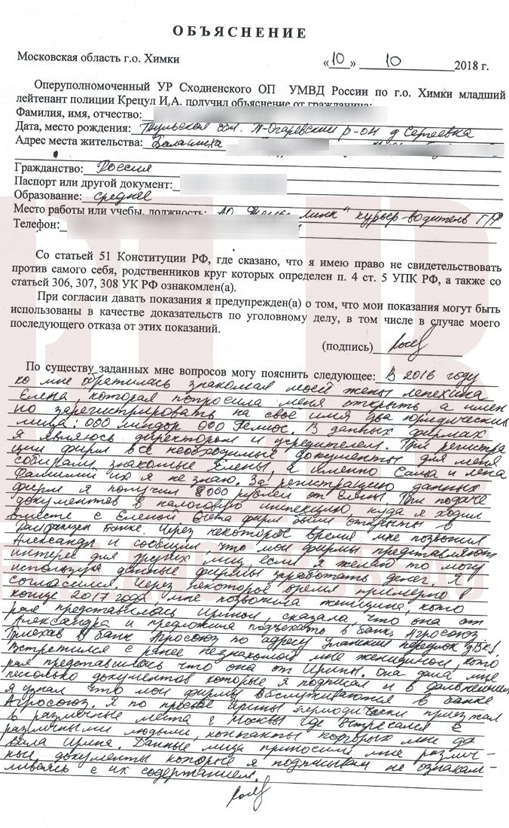 ОБЪЯСНЕНИЕ
Московская область г.о. Химки «10» 10 2018 г.
Оперуполномоченный УР Сходненского ОП УМВД России по г.о. Химки младший
лейтенант полиции Крецул И.А. получил объяснение от гражданина:
Фамилия, имя, отчество:
Дата, место рождения: Тульская обл. Т-Огаревский р-он д Сергеевка
Адрес места жительства: Балашиха
Гражданство: Россия
Паспорт или другой документ:
Образование: среднее
Место работы или учебы, должность: АО линк" курьер-водитель
Телефон:
Со статьей 51 Конституции РФ, где сказано, что я имею право не свидетельствовать
против самого себя, родственников круг которых определен п. 4 ст. 5 УПК РФ, а также со
статьей 306, 307, 308 УК РФ ознакомлен(а).
При согласии давать показания я предупрежден(а) о том, что мои показания могут быть
использованы в качестве доказательств по уголовному делу, в том числе в случае моего
последующего отказа от этих показаний.
(подпись)
По существу заданных мне вопросов могу пояснить следующее: В 2016 году
ко мне обратилась знакомая моей жены Лепехина
Елена, которая попросила меня открыть а имен
но зарегистрировать на свое имя два юридических
лица: ООО ООО Гелиос. В данных фирмах
я являюсь директором и учредителем. При регистра
ции фирм все необходимые документы для меня
собирали знакомые Елены, а именно Саша и Лена
Фамилии их я не знаю. За регистрацию данных
фирм я получил 8000 рублей от Елены При подаче
документов в налоговую инспекцию куда я ходил
вместе с Еленой. Счета фирм были открыты в
банке через некоторое время мне позвонил
Александр и сообщил что мои фирмы представляют
интерес для других лиц если я желаю то могу
используя данные фирмы заработать денег. Я
согласился. Через некоторое время примерно в
конце 2017 года мне позвонила женщина, кото
рая представилась Ириной сказала что она от
Александра и предложила подъехать в банк Агросоюз
Приехав в банк Агросоюз по адресу переулок
Встретился с ранее незнакомой мне женщиной, кото
рая представилась что она от Ирины. Она дала мне
несколько документов которые я подписал и в дальнейшем
я узнал что мои фирмы обслуживаются в банке
Агросоюз. Я по просьбе Ирины периодически приезжал
в различные места г Москвы где встречался с
различными людьми, контакты которых мне да
вала Ирина. Данные лица приносили мне различ-
ные документы которые я подписывал не ознаком-
ливаясь с их содержанием.